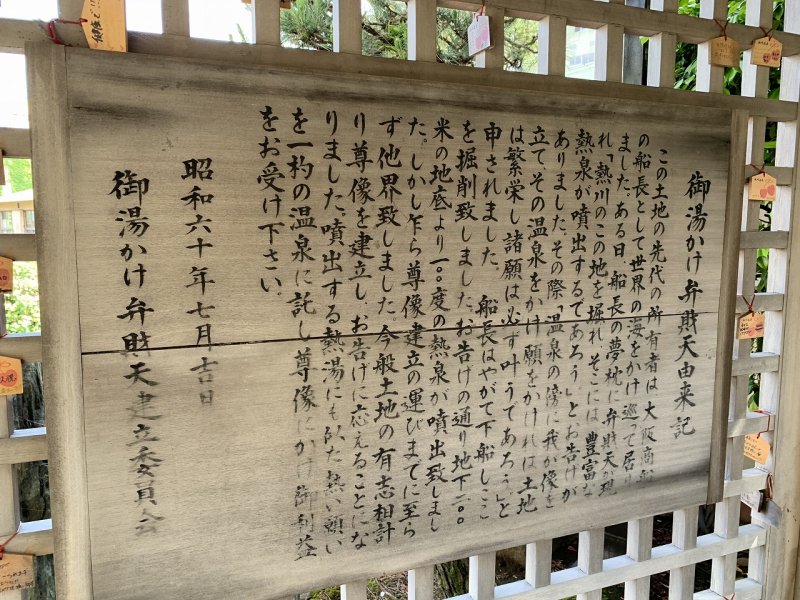 御湯かけ弁財天由来記
この土地の先代の所有者は大阪商船
の船長として世界の海をかけ巡って居り
ました。ある日、船長の夢枕に弁財天が現
れ「熱川のこの地を掘れ、そこには、豊富な
熱泉が噴出するであろう」と、お告げが
ありました。その際「温泉の傍に我が像を
立て、その温泉をかけ願をかければ、土地
は繁栄し諸願は必ず叶うであろう」と
申されました。船長はやがて下船しここ
を掘削致しました。お告げの通り地下二〇〇
米の地底より一〇〇度の熱泉が噴出致しまし
た。しかし乍ら尊像建立の運びまでに至ら
ず他界致しました。今般土地の有志相計
り尊像を建立し、お告げに応えることにな
りました。噴出する熱湯にも似た熱い願い
を一杓の温泉に託し尊像にかけ御利益
をお受け下さい。
昭和六十年七月吉日
御湯かけ弁財天建立委員会